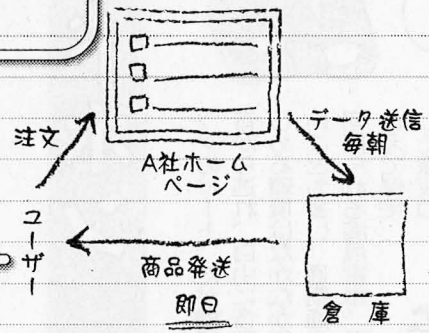 注文
A社ホーム
ページ
データ送信
毎朝
ユーザー
商品発送
即日
倉庫